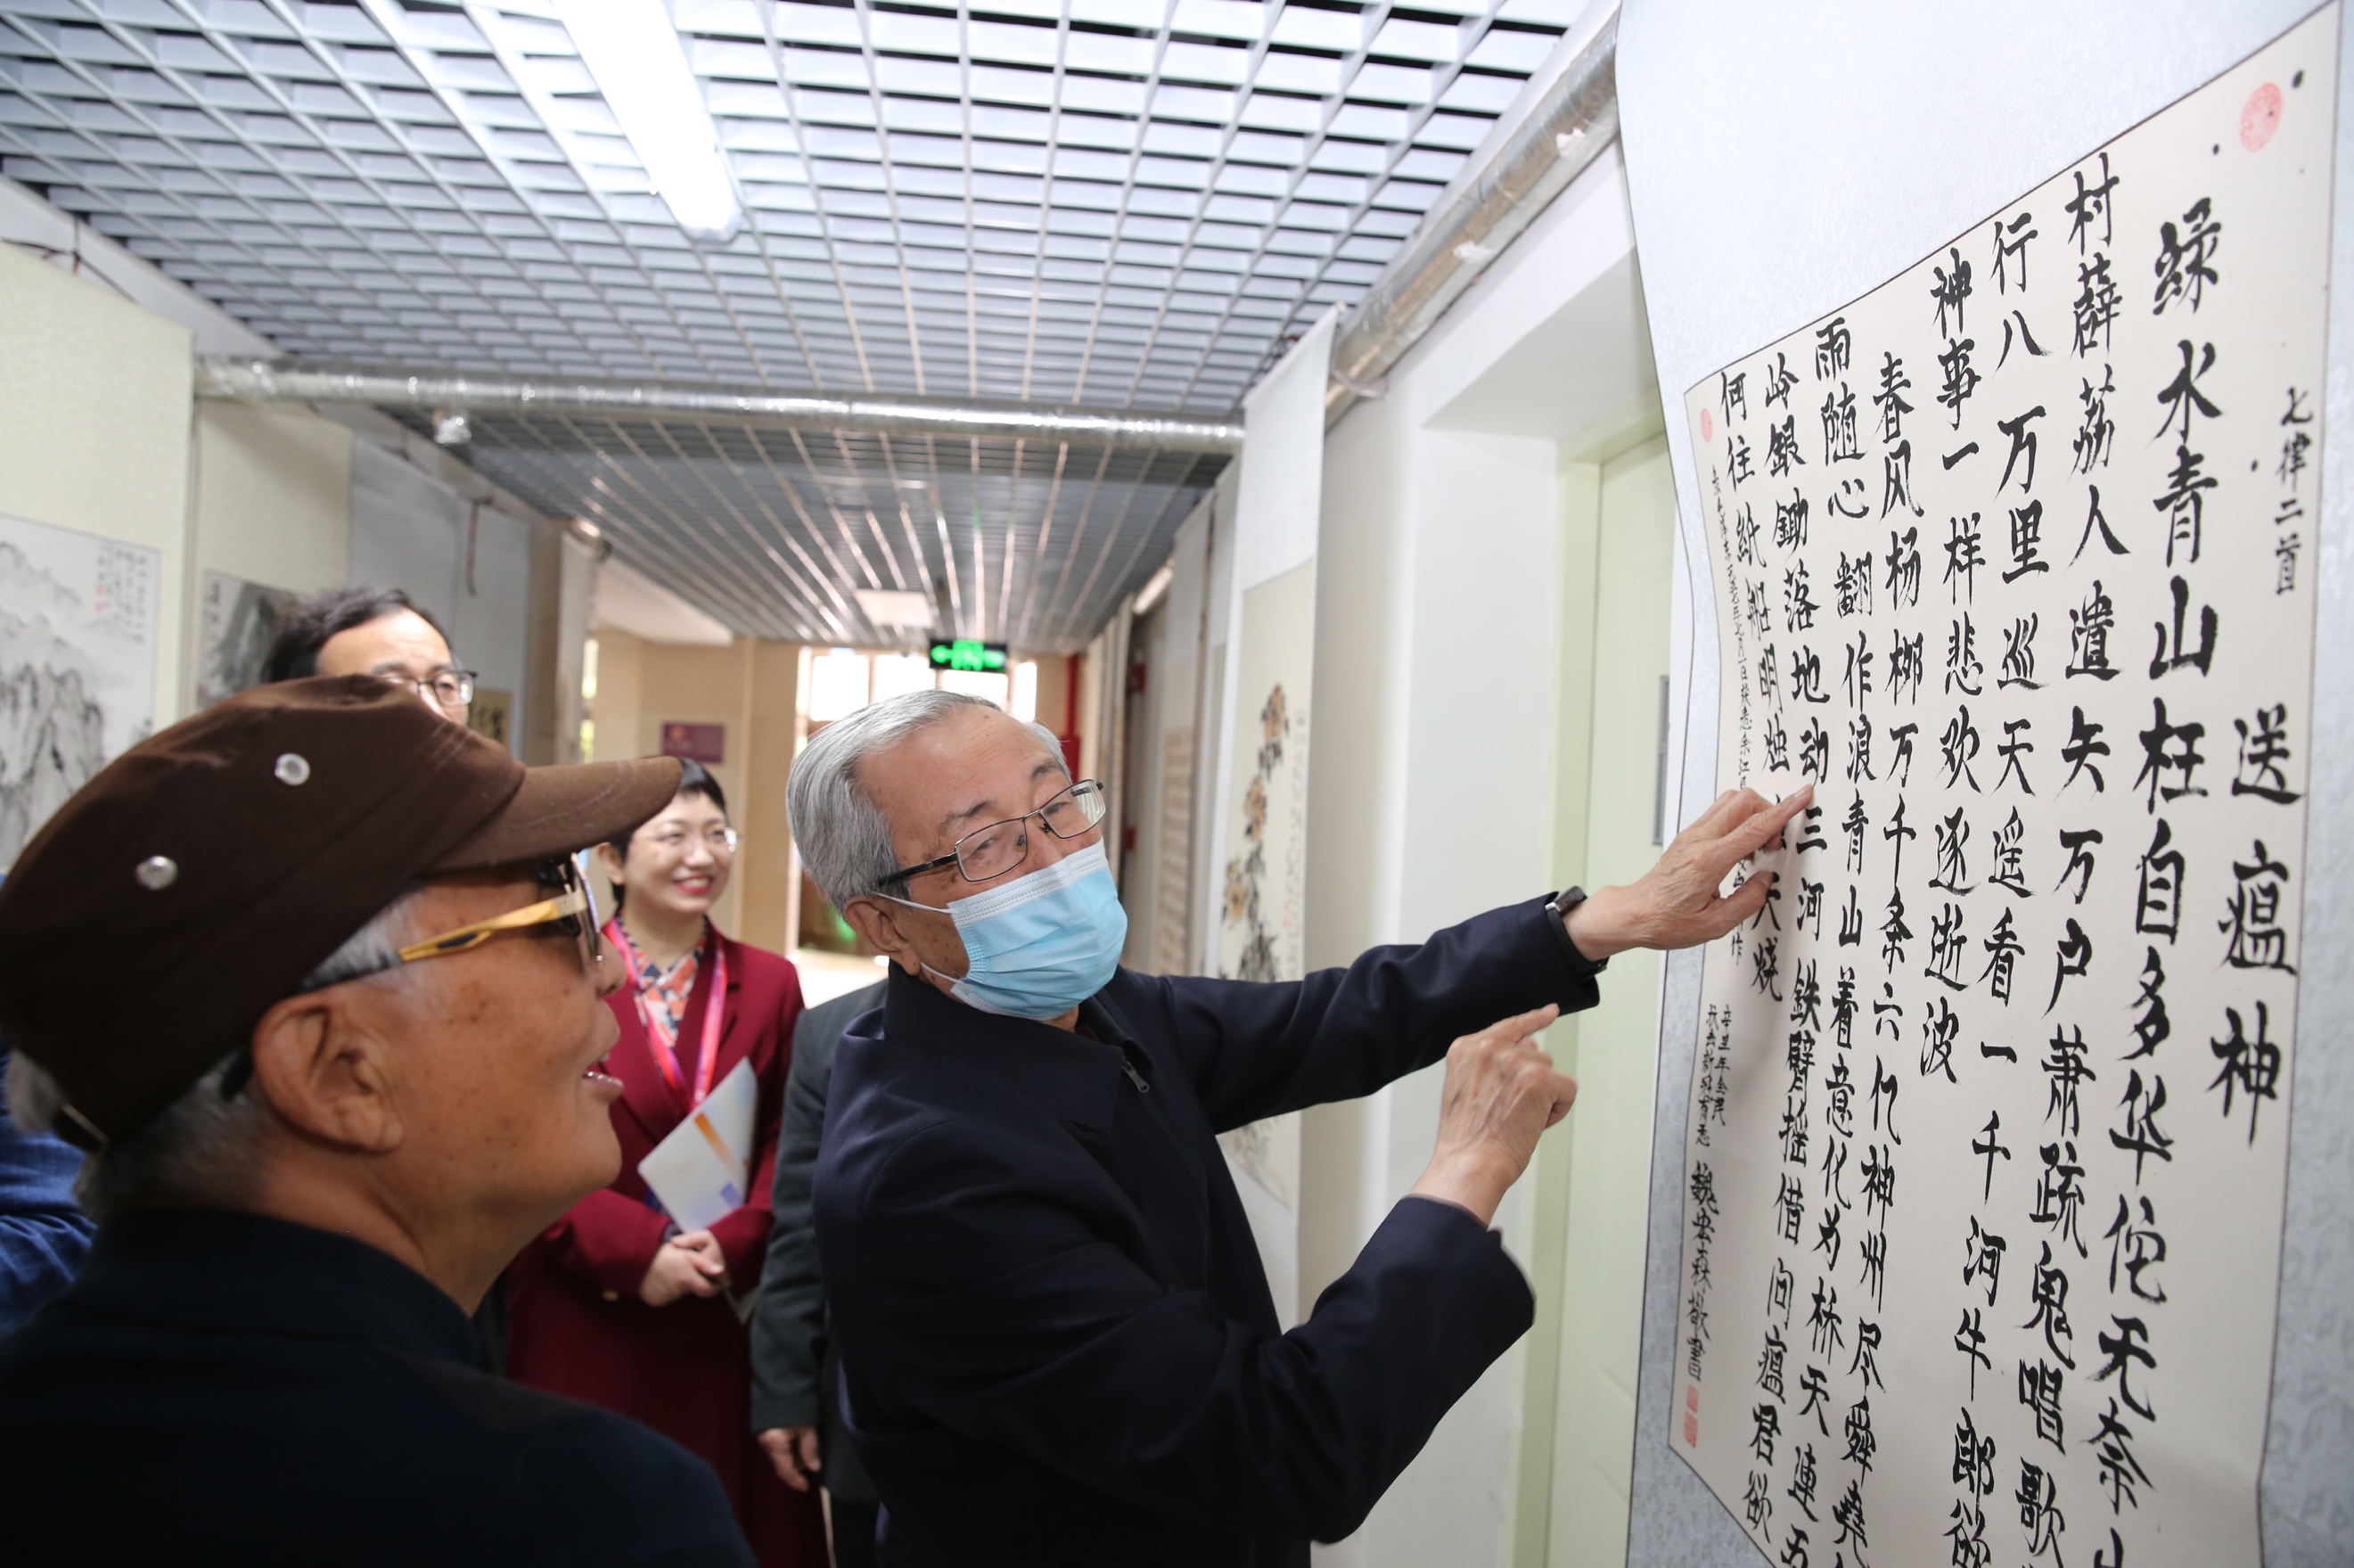 七律二首
送瘟神
绿水青山枉自多华佗无奈小
村薜荔人遗矢万户萧疏鬼唱歌
行八万里巡天遥看一千河牛郎欲
神事一样悲欢逐逝波
春风杨柳万千条六亿神州尽舜尧
雨随心翻作浪青山着意化为桥天连五
岭银锄落地动三河铁臂摇借问瘟君欲
何往纸船明烛 天烧
辛丑年
魏宏森敬書